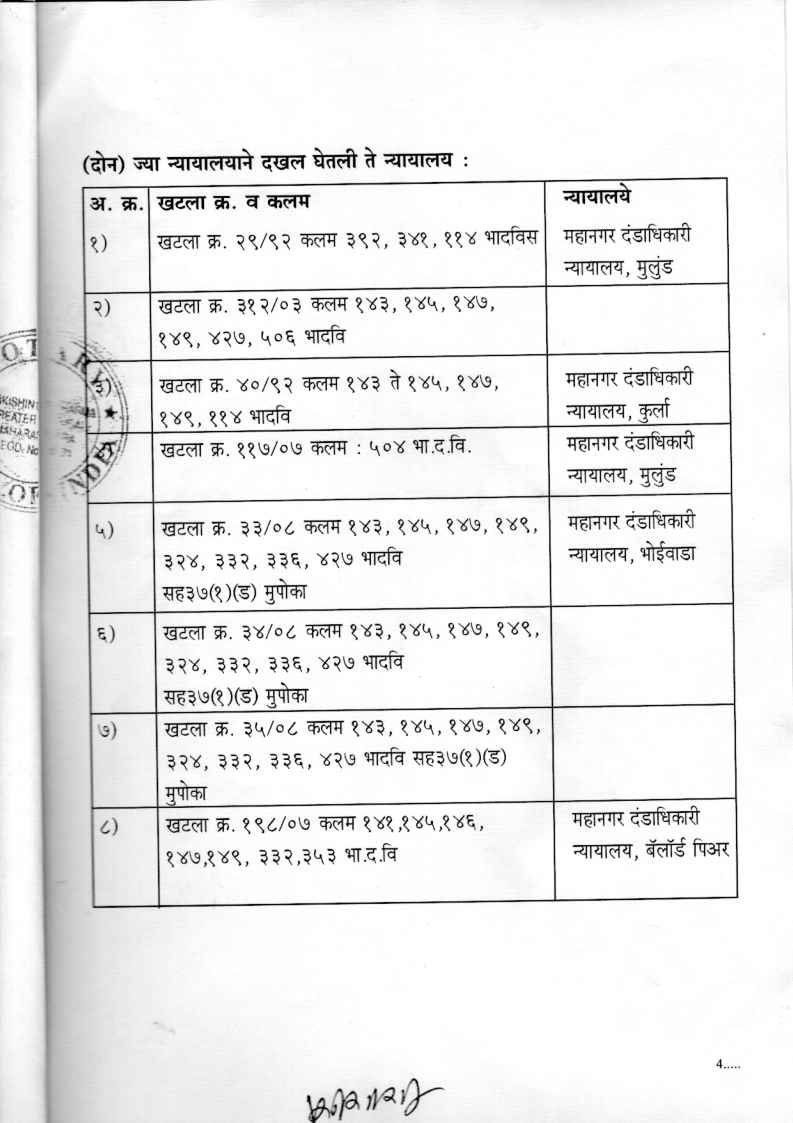 (दोन) ज्या न्यायालयाने दखल घेतली ते न्यायालय :
अ. क्र. खटला क्र. व कलम न्यायालये
१) खटला क्र. २९/९२ कलम ३९२, ३४१, ११४ भादविस महानगर दंडाधिकारी
न्यायालय, मुलुंड
२) खटला क्र. ३१२/०३ कलम १४३, १४५, १४७,
१४९, ४२७, ५०६ भादवि
३) खटला क्र. ४०/९२ कलम १४३ ते १४५, १४७, महानगर दंडाधिकारी
१४९, ११४ भादवि न्यायालय, कुर्ला
खटला क्र. ११७/०७ कलम : ५०४ भा.द.वि. महानगर दंडाधिकारी
न्यायालय, मुलुंड
५) खटला क्र. ३३/०८ कलम १४३, १४५, १४७, १४९, महानगर दंडाधिकारी
३२४, ३३२, ३३६, ४२७ भादवि न्यायालय, भोईवाडा
सह३७(१)(ड) मुपोका
६) खटला क्र. ३४/०८ कलम १४३, १४५, १४७, १४९,
३२४, ३३२, ३३६, ४२७ भादवि
सह३७(१)(ड) मुपोका
७) खटला क्र. ३५/०८ कलम १४३, १४५, १४७, १४९,
३२४, ३३२, ३३६, ४२७ भादवि सह३७(१)(ड)
मुपोका
८) खटला क्र. १९८/०७ कलम १४१,१४५,१४६, महानगर दंडाधिकारी
१४७,१४९, ३३२,३५३ भा.द.वि न्यायालय, बॅलॉर्ड पिअर
4.....